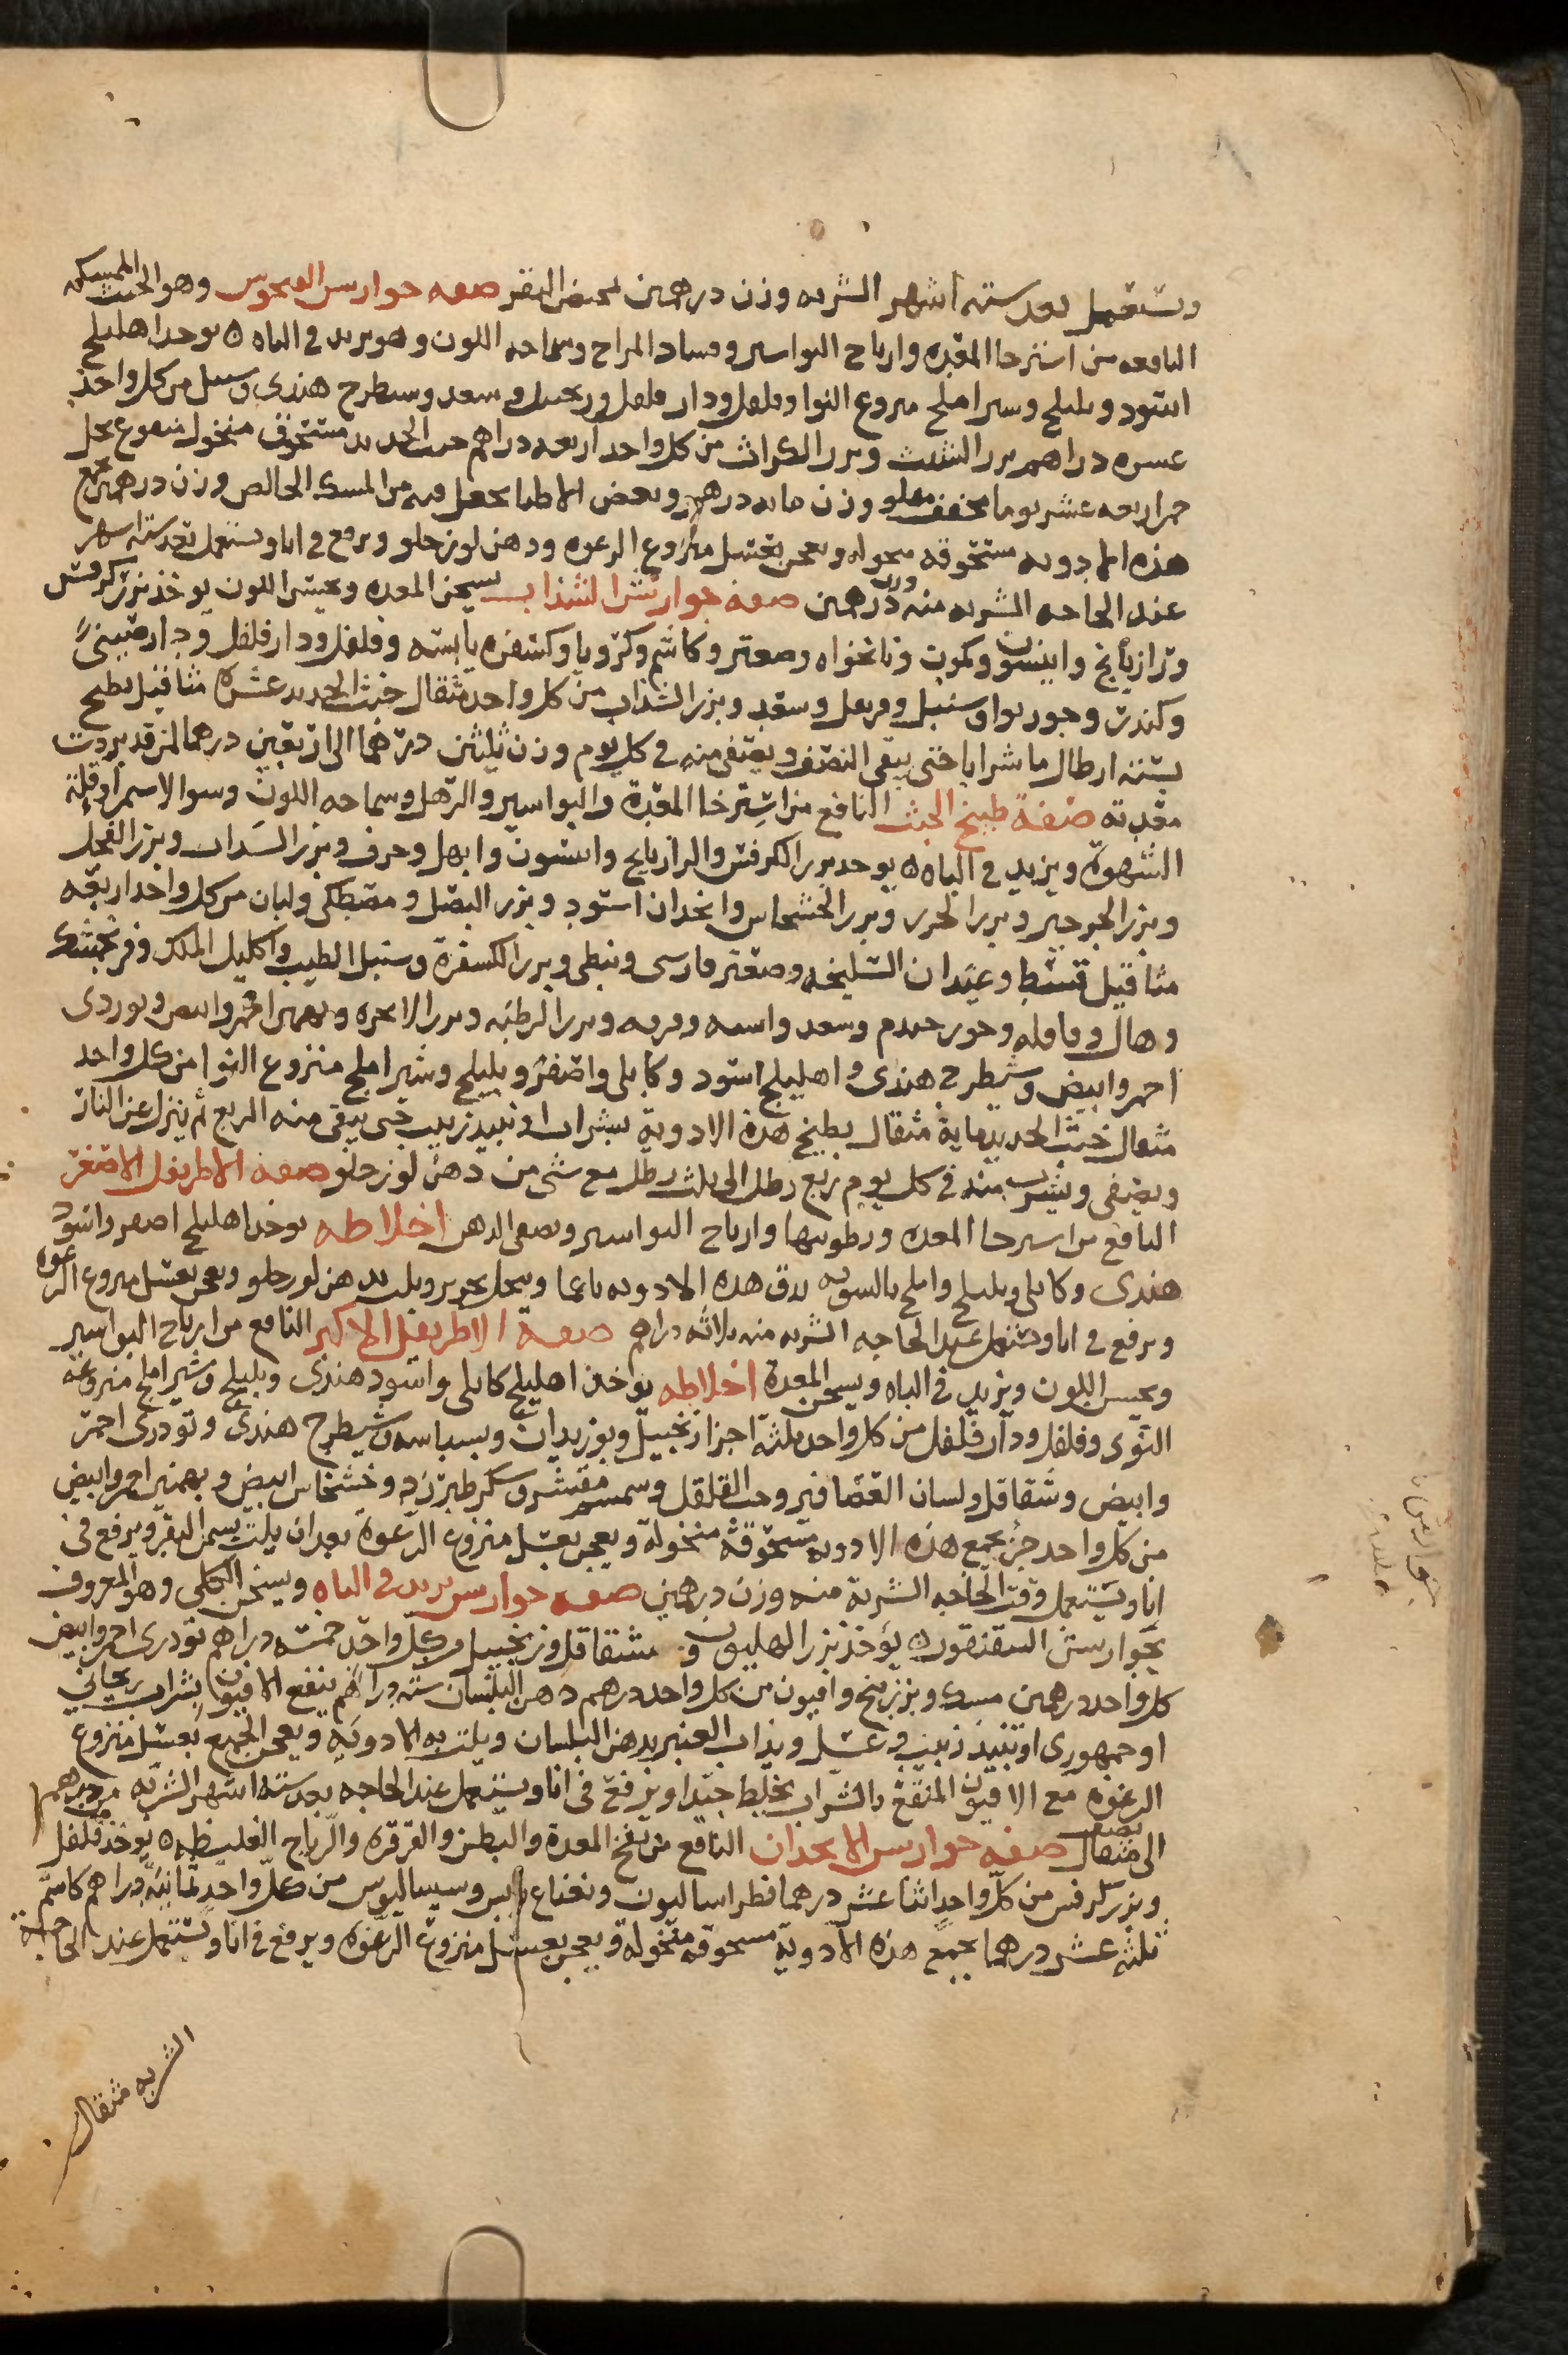 ويستعمل بعد ستة اشهر الشربه وزن درهمين بمخيض البقر صفه جوارسن الفنجوس وهو الخبث الممسكه
النافعه من استرخا المعده وارياح البواسير وفساد المزاج وسماجه اللون وهو يزيد في الباه ه يوخذ اهليلج
اسود وبليلج وسير املج منزوع النوا وفلفل ودار فلفل وزنجبيل وسعد وسطرج هندى وسنبل من كل واحد
عسره دراهم بزر الشبث وبزر الكراث من كل واحد اربعه دراهم خبث الحديد مستحوق منخول منقوع بخل
خمر اربعه عشر يوما مجفف مقلو وزن مايه درهم وبعض الاطبا يجعل فيه من المسك الخالص وزن درهمين تجمع
هذه الادويه مستحوقه منخوله ويعجن بعسل منزوع الرغوه ودهن لوز حلو ويرفع في انا ويستعمل بعد ستة اشهر
عند الحاجه الشربه منه وزن درهمين صفه جوارشن الشذاب يسخن المعده ويحسن اللون يوخذ بزر كرفس
ورازيانج وانيسون وكمون ونانخواه وصعتر وكاشم وكرويا وكسفره يابسه وفلفل ودار فلفل ودار صينى
وكندر وجوز بوا وسنبل وقرنفل وسعد وبزر الشذاب من كل واحد مثقال خبث الحديد عشره مثاقيل يطبخ
بستة ارطال ماشرابا حتى يبقى النصف ويصفى منه في كل يوم وزن ثلثين درهما الى اربعين درهما لمن قد بردت
معدته صفة طبيخ الخبث النافع من استرخا المعدة والبواسير والترهل وسماجه اللون وسوا الاسمرا وقلة
الشهوة ويزيد في الباه ه يوخذ بزر الكرفس والرازيانج وانيسون وابهل وحرف وبزر السداب وبزر الفجل
وبزر الجرجير وبزر الجزر وبزر الخشخاش وانجدان اسود وبزر البصل ومصطكى ولبان من كل واحد اربعه
مثاقيل قسط وعيدان السليخه وصعتر فارسى ونبطى وبزر الكسفرة وسنبل الطيب واكليل الملك وفرنجمشك
وهال وقاقله وجوز جندم وسعد واشنه وقرفه وبزر الرطبه وبزر الانجره وبهمن احمر وابيض وتوردى
احمر وابيض وشيطرج هندى واهليلج اسود وكابلى واصفر وبليلج وشير املج منزوع النوا من كل واحد
مثقال خبث الحديد مايه مثقال يطبخ هذه الادوية بشراب او نبيذ زبيب حتى يبقى منه الربع ثم ينزل عن النار
ويصفى ويشرب منه في كل يوم ربع رطل الى ثلث رطل مع شى من دهن لوز حلو صفه الاطريفل الاصغر
النافع من استرخا المعده ورطوبتها وارياح البواسير ويصفى الذهن اخلاطه يوخذ اهليلج اصفر واسود
هندى وكابلى وبليلج واملج بالسويه يدق هذه الادويه ناعما وينخل بحرير ويلت بدهن لوز حلو ويعجن بعسل منزوع الرغوه
ويرفع في انا ويستعمل عند الحاجه الشربه منه ثلاثه دراهم صفة الاطريفل الاكبر النافع من ارياح البواسير
ويحسن اللون ويزيد في الباه ويسخن المعدة اخلاطه يواخذ اهليلج كابلى واسود هندى وبليلج وشير املج منزوعه
النوى وفلفل ودار فلفل من كل واحد ثلثة اجزا زنجبيل وبوزيدان وبسباسه وشيطرج هندى وتودرى احمر
وابيض وشقاقل ولسان العصافير وحب القلقل وسمسم مقشر وسكر طبرزد وخشخاش ابيض وبهمنين احمر وابيض
من كل واحد جز تجمع هذه الادويه مسحوقه منخولة ويعجن بعسل منزوع الرغوة بعد ان يلت بسمن البقر ويرفع فى
انا ويستعمل وقت الحاجه الشربة منه وزن درهمين صفه جوارسن يزيد في الباه ويسخن الكلى وهو المعروف
بجوارسن السقنقور ه يوخذ بزر الهليون وشقاقل وزنجبيل من كل واحد خمسه دراهم تودرى احمر وابيض
كل واحد درهمين مسك وبزر بنج وافيون من كل واحد درهم دهن البلسان سته دراهم ينقع الافيون بشراب ريحاني
او جمهورى او نبيذ زبيب وعسل ويذاب العنبر بدهن البلسان ويلت به الادوية ويعجن الجميع بعسل منزوع
الرغوه مع الافيون المنقع بالشراب يخلط جيدا ويرفع فى انا ويستعمل عند الحاجه بعد ستة اشهر الشربه من درهم
الى مثقال صفه جوارسن الانجدان النافع من نفخ المعدة والبطن والقرقره والرياح الغليظه ه يوخذ فلفل
وبزر كرفس من كل واحد اثنا عشر درهما فطراساليون ونعناع يابس وسيساليوس من كل واحد ثمانيه دراهم كاشم
ثلثه عشر درهما تجمع هذه الادوية مسحوقه منخولة ويعجن بعسل منزوع الرغوه ويرفع في انا ويستعمل عند الحاجة
الشربه مثقال